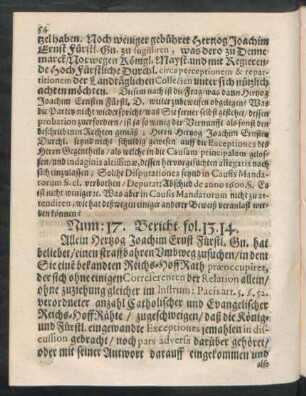 54
tzel haben. Noch weniger gebühret Hertzog Joachim
Ernst Fürstl. Gn. zu suggeriren, was dero zu Denne-
marck/Norwegen Königl. Mayst. und mit Regieren-
de Hoch Fürstliche Durchl. circa perceptionem & repar-
titionem der Landtäglichen Collecten unter sich nützlich
achten möchten. Diesem nach ist die Frag/was dann Hertzog
Joachim Ernsten Fürstl. D. weiter zubeweisen obgelegen? Was
die Partey nicht widerspricht/was Sie ferner selbst gestehet/ dessen
probation zuerfordern/ ist so wenig der Vernunfft als sonst den
beschriebenen Rechten gemäß, Herrn Hertzog Joachim Ernsten
Durchl. seynd nicht schuldig gewesen auff die Exceptiones des
Herrn Gegentheils/ als welche in der Causam principalem geloss-
sen/und indaginis altissimæ, dessen hervorgesuchten allegatis nach
sich einzulassen, Solche Disputationes seynd in Causis Mandato-
rum S. cl. verbothen/ Deputat: Abschied de anno 1600. §. Es
ist nicht weniger ꝛc. Was aber in Causis Mandatorum nicht zu at-
tendiren/ wie hat deßwegen einiger anderer Beweiß veranlast wer-
den können?
Num: 17. Bericht fol. 13. 14.
Allein Hertzog Joachim Ernst Fürstl. Gn. hat
beliebet/einen straffbahren Umbweg zusuchen/in dem
Sie eine befandten Reichs-Hoff Rath præoccupiret,
der sich ohne einigen Correferenten der Relation allein/
ohne zuziehung gleicher im Instrum: Pacis art. 5. §. 52.
verordneter anzahl Catholischer und Evangelischer
Reichs-Hoff Rähte/ zugeschweigen/ daß die Königl-
und Fürstl. eingewandte Exceptiones jemahln in dis-
cussion gebracht/ noch pars adversa darüber gehöret/
oder mit seiner Antwort darauff eingekommen und
also